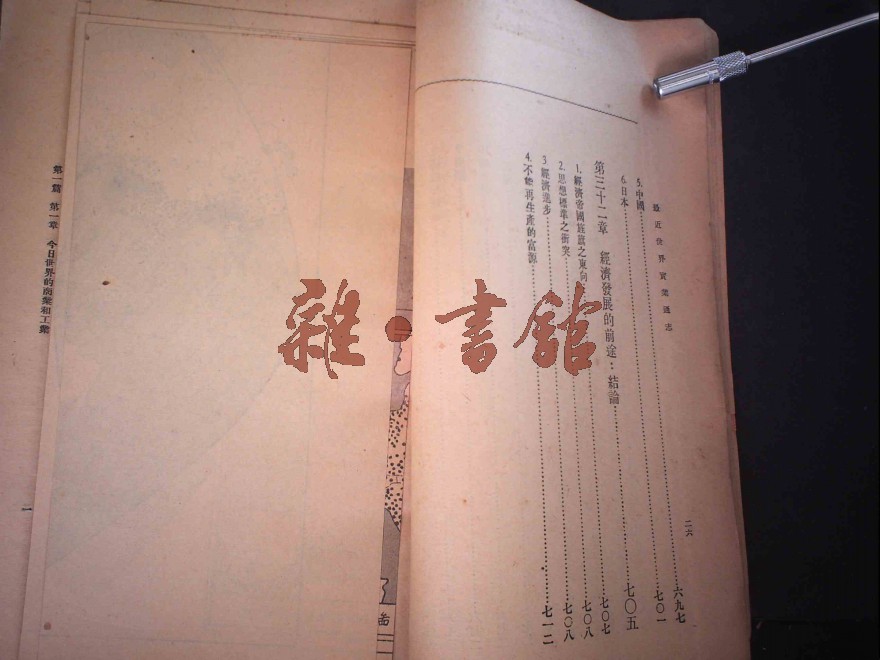 最近世界實業通志
二六
5.中國……六九七
6.日本……七〇一
第三十二章 經濟發展的前途：結論……七〇五
1.經濟帝國旌旗之東向……七〇七
2.思想標準之衝突……七〇八
3.經濟進步……七〇八
4.不能再生產的富源……七一二
雜·書館
第一篇 第一章 今日世界的商業和工業
一